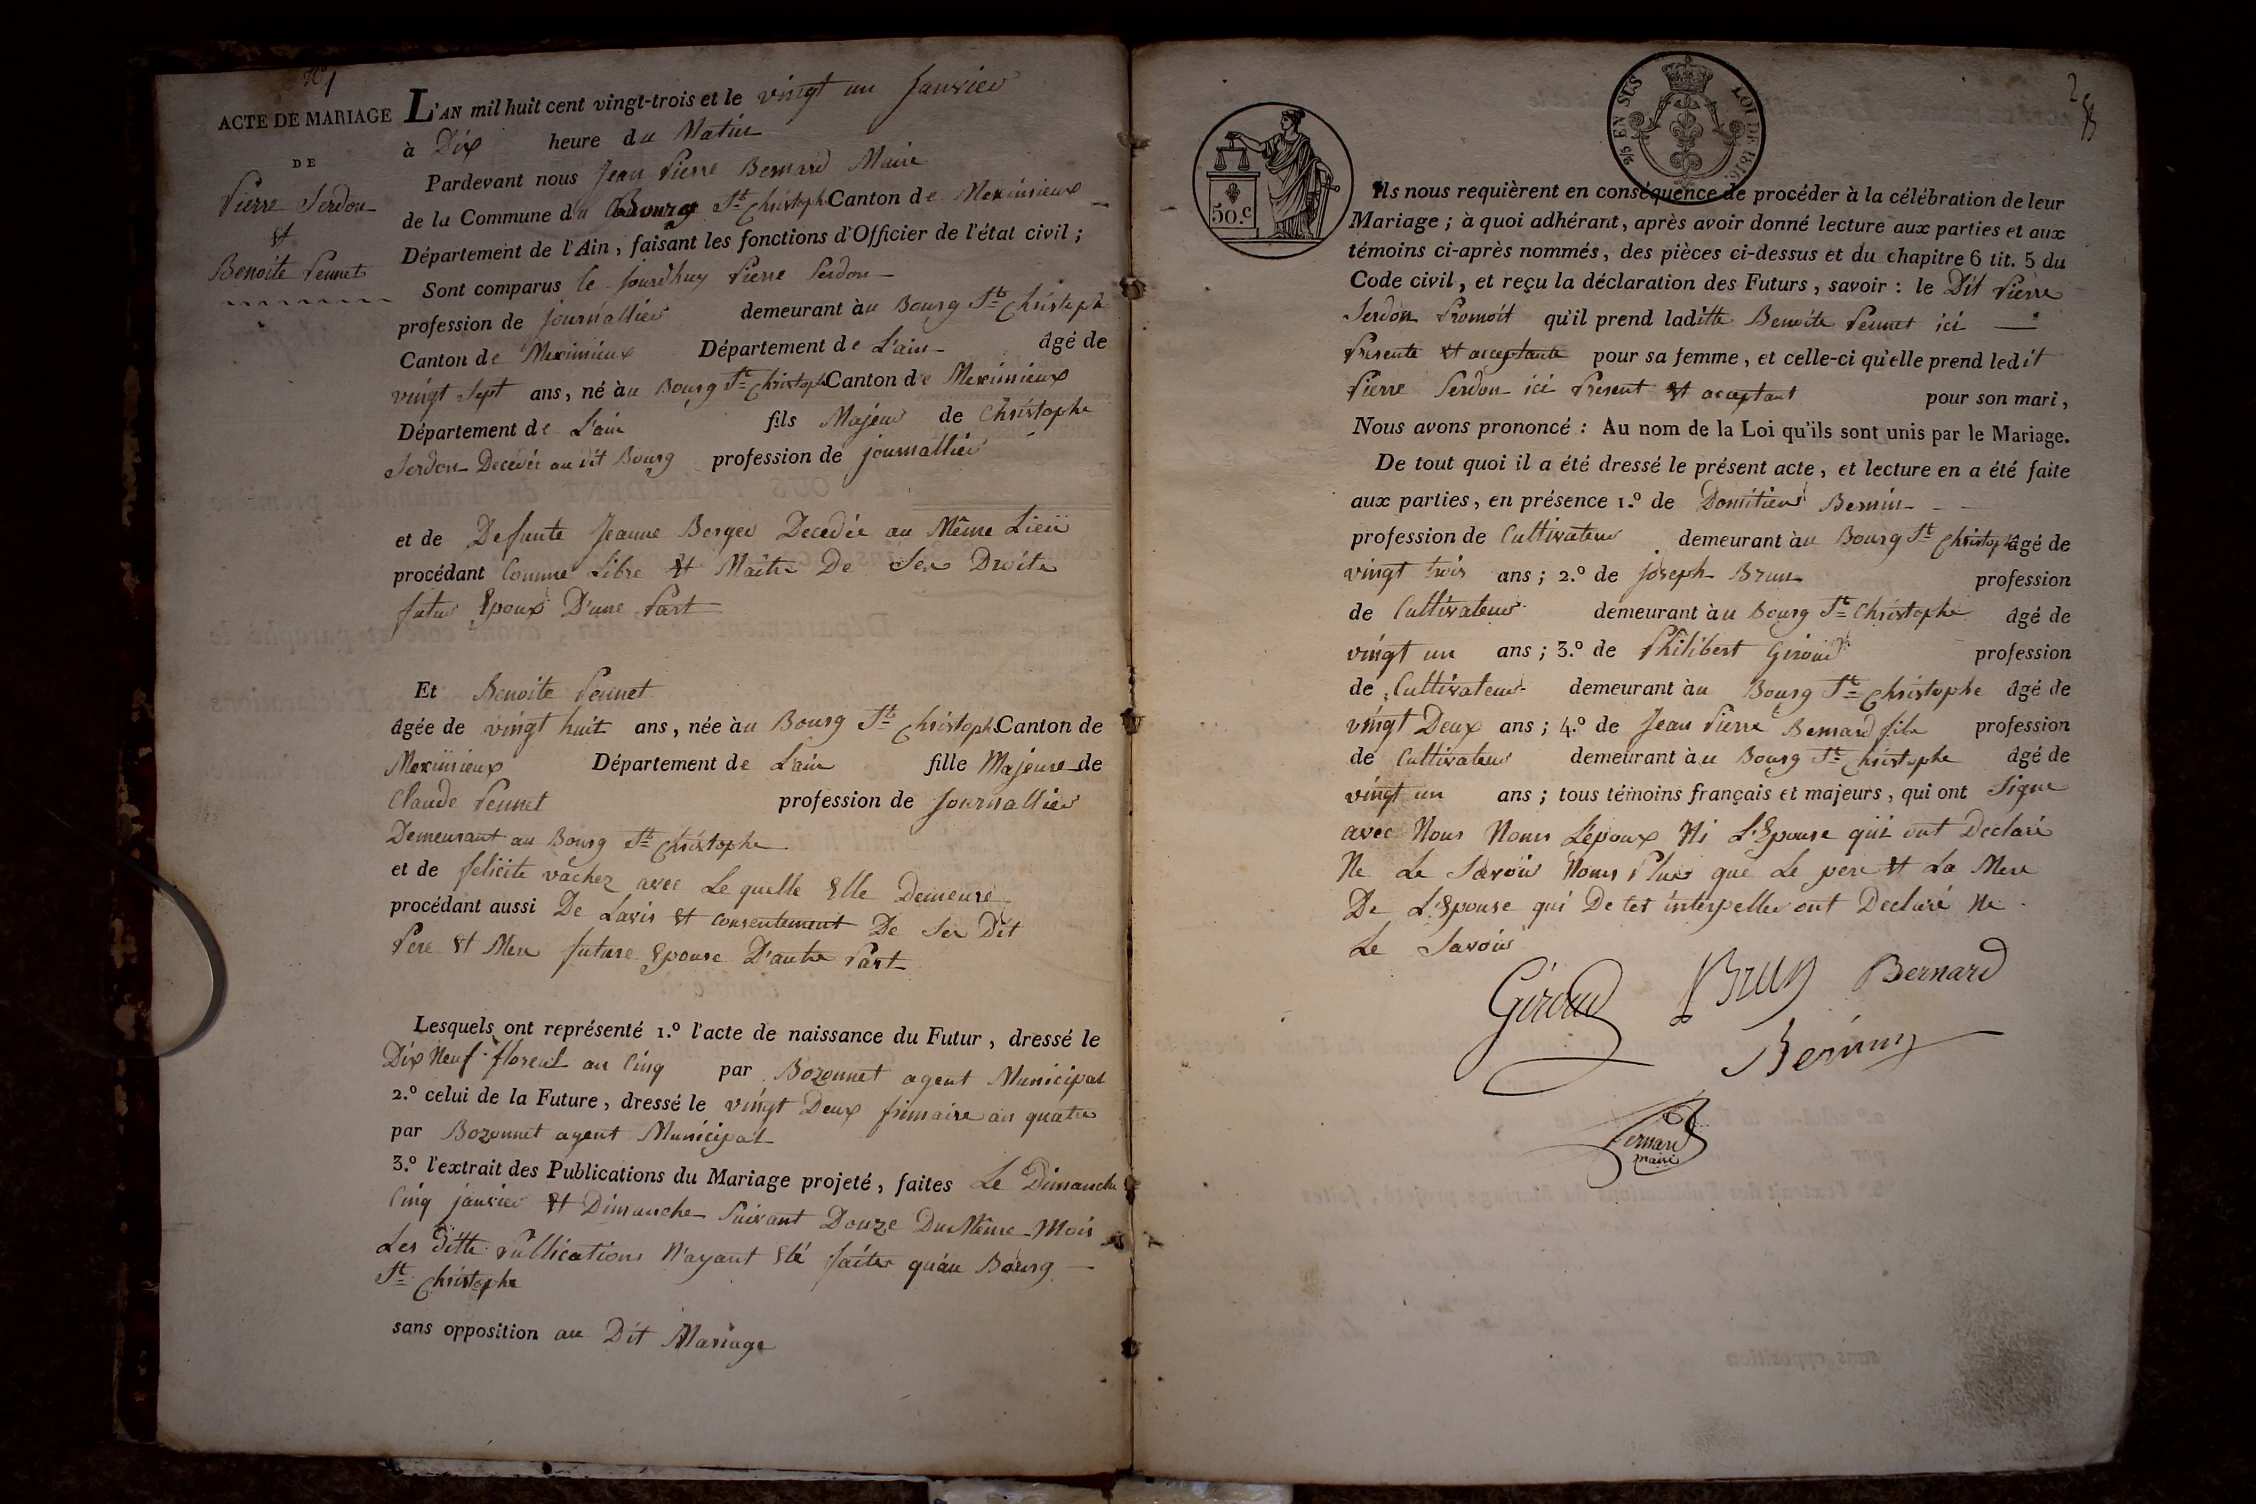 N.º 1
ACTE DE MARIAGE
DE
Pierre Serdon
Et
Benoite Pennet
L'AN mil huit cent vingt-trois et le vingt un Janvier
à Dix heure du Matin
Pardevant nous Jean Pierre Bernard Maire
de la Commune du Bourg St Christophe Canton de Meximieux
Département de l'Ain, faisant les fonctions d'Officier de l'état civil;
Sont comparus le Jourdhuy Pierre Serdon
profession de journallier demeurant àu Bourg St Christophe
Canton de Meximieux Département de L'ain âgé de
vingt sept ans, né àu Bourg St Christophe Canton de Meximieux
Département de L'ain fils Majeur de Christophe
Serdon Decédée au dit Bourg profession de journallier
et de Defunte Jeanne Berger Decedée au Même Lieu
procédant Comme Libre Et Maître De Ses Droits
futur Epoux D'une Part
Et Benoite Pennet
âgée de vingt huit ans, née àu Bourg St Christophe Canton de
Meximieux Département de L'ain fille Majeure de
Claude Pennet profession de Journallier
Demeurant au Bourg St Christophe
et de felicite vachez avec Le quelle Elle Demeure
procédant aussi De Lavis Et Consentement De Ses Dit
Pere Et Mere future Epouse D'autre Part
Lesquels ont représenté 1.º l'acte de naissance du Futur, dressé le
Dix Neuf floreal an Cinq par Bozonnet agent Municipal
2.º celui de la Future, dressé le vingt Deux frimaire an quatre
par Bozonnet agent Municipal
3.º l'extrait des Publications du Mariage projeté, faites Le Dimanche
Cinq janvier Et Dimanche Suivant Douze Du Même Mois
Les Ditte Publications N'ayant Eté faites qu'au Bourg
St Christophe
sans opposition au Dit Mariage
50.c
2/5 EN SUS LOI DE 1816.
2
Ils nous requièrent en conséquence de procéder à la célébration de leur
Mariage; à quoi adhérant, après avoir donné lecture aux parties et aux
témoins ci-après nommés, des pièces ci-dessus et du chapitre 6 tit. 5 du
Code civil, et reçu la déclaration des Futurs, savoir: le Dit Pierre
Serdon Promoit qu'il prend laditte Benoite Pennet ici
Presente Et acceptante pour sa femme, et celle-ci qu'elle prend ledit
Pierre Serdon ici Present Et acceptant pour son mari,
Nous avons prononcé: Au nom de la Loi qu'ils sont unis par le Mariage.
De tout quoi il a été dressé le présent acte, et lecture en a été faite
aux parties, en présence 1.º de Domitien Bernin
profession de Cultivateur demeurant àu Bourg St Christophe âgé de
vingt trois ans; 2.º de joseph Brun profession
de Cultivateur demeurant àu Bourg St Christophe âgé de
vingt un ans; 3.º de Philibert Giroud profession
de Cultivateur demeurant àu Bourg St Christophe âgé de
vingt Deux ans; 4.º de Jean Pierre Bernard fils profession
de Cultivateur demeurant àu Bourg St Christophe âgé de
vingt un ans; tous témoins français et majeurs, qui ont Signe
avec Nous Nomes L'époux Ni L'Epouse qui ont Declaré
Ne Le Savoir Nomes Plus que Le pere Et La Mere
De L'Epouse qui De ces interpelles ont Declaré Ne
Le Savoir
Giroud Brun Bernard
Bernin
Bernard
maire